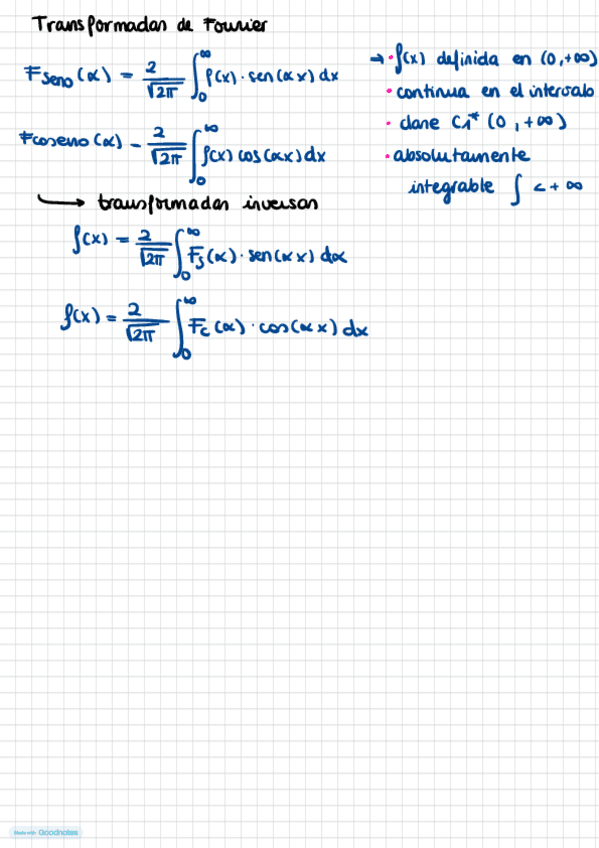 Transformadas de Fourier
Fseno(α) = 2/√2π ∫₀^∞ f(x) · sen(αx) dx
Fcoseno(α) = 2/√2π ∫₀^∞ f(x) cos(αx) dx
→ · f(x) definida en (0,+∞)
· continua en el intervalo
· clase C1* (0,+∞)
· absolutamente
integrable ∫ < +∞
→ transformadas inversas
f(x) = 2/√2π ∫₀^∞ Fs(α) · sen(αx) dα
f(x) = 2/√2π ∫₀^∞ Fc(α) · cos(αx) dx
Made with Goodnotes